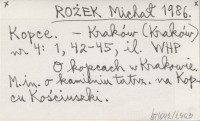 ROŻEK Michał 1986.
Kopce. – Kraków (Kraków)
nr 4: 1, 42-45, il. WHP
O kopcach w Krakowie.
M.in. o kamieniu tatrz. na Kop-
cu Kościuszki.